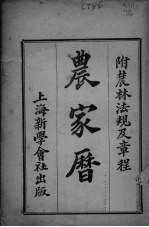 附農林法規及章程
農家曆
上海新學會社出版